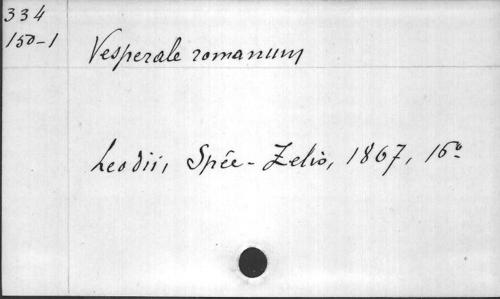 334
150-1
Vesperale romanum
Leodii, Spée-Zelis, 1867, 16º